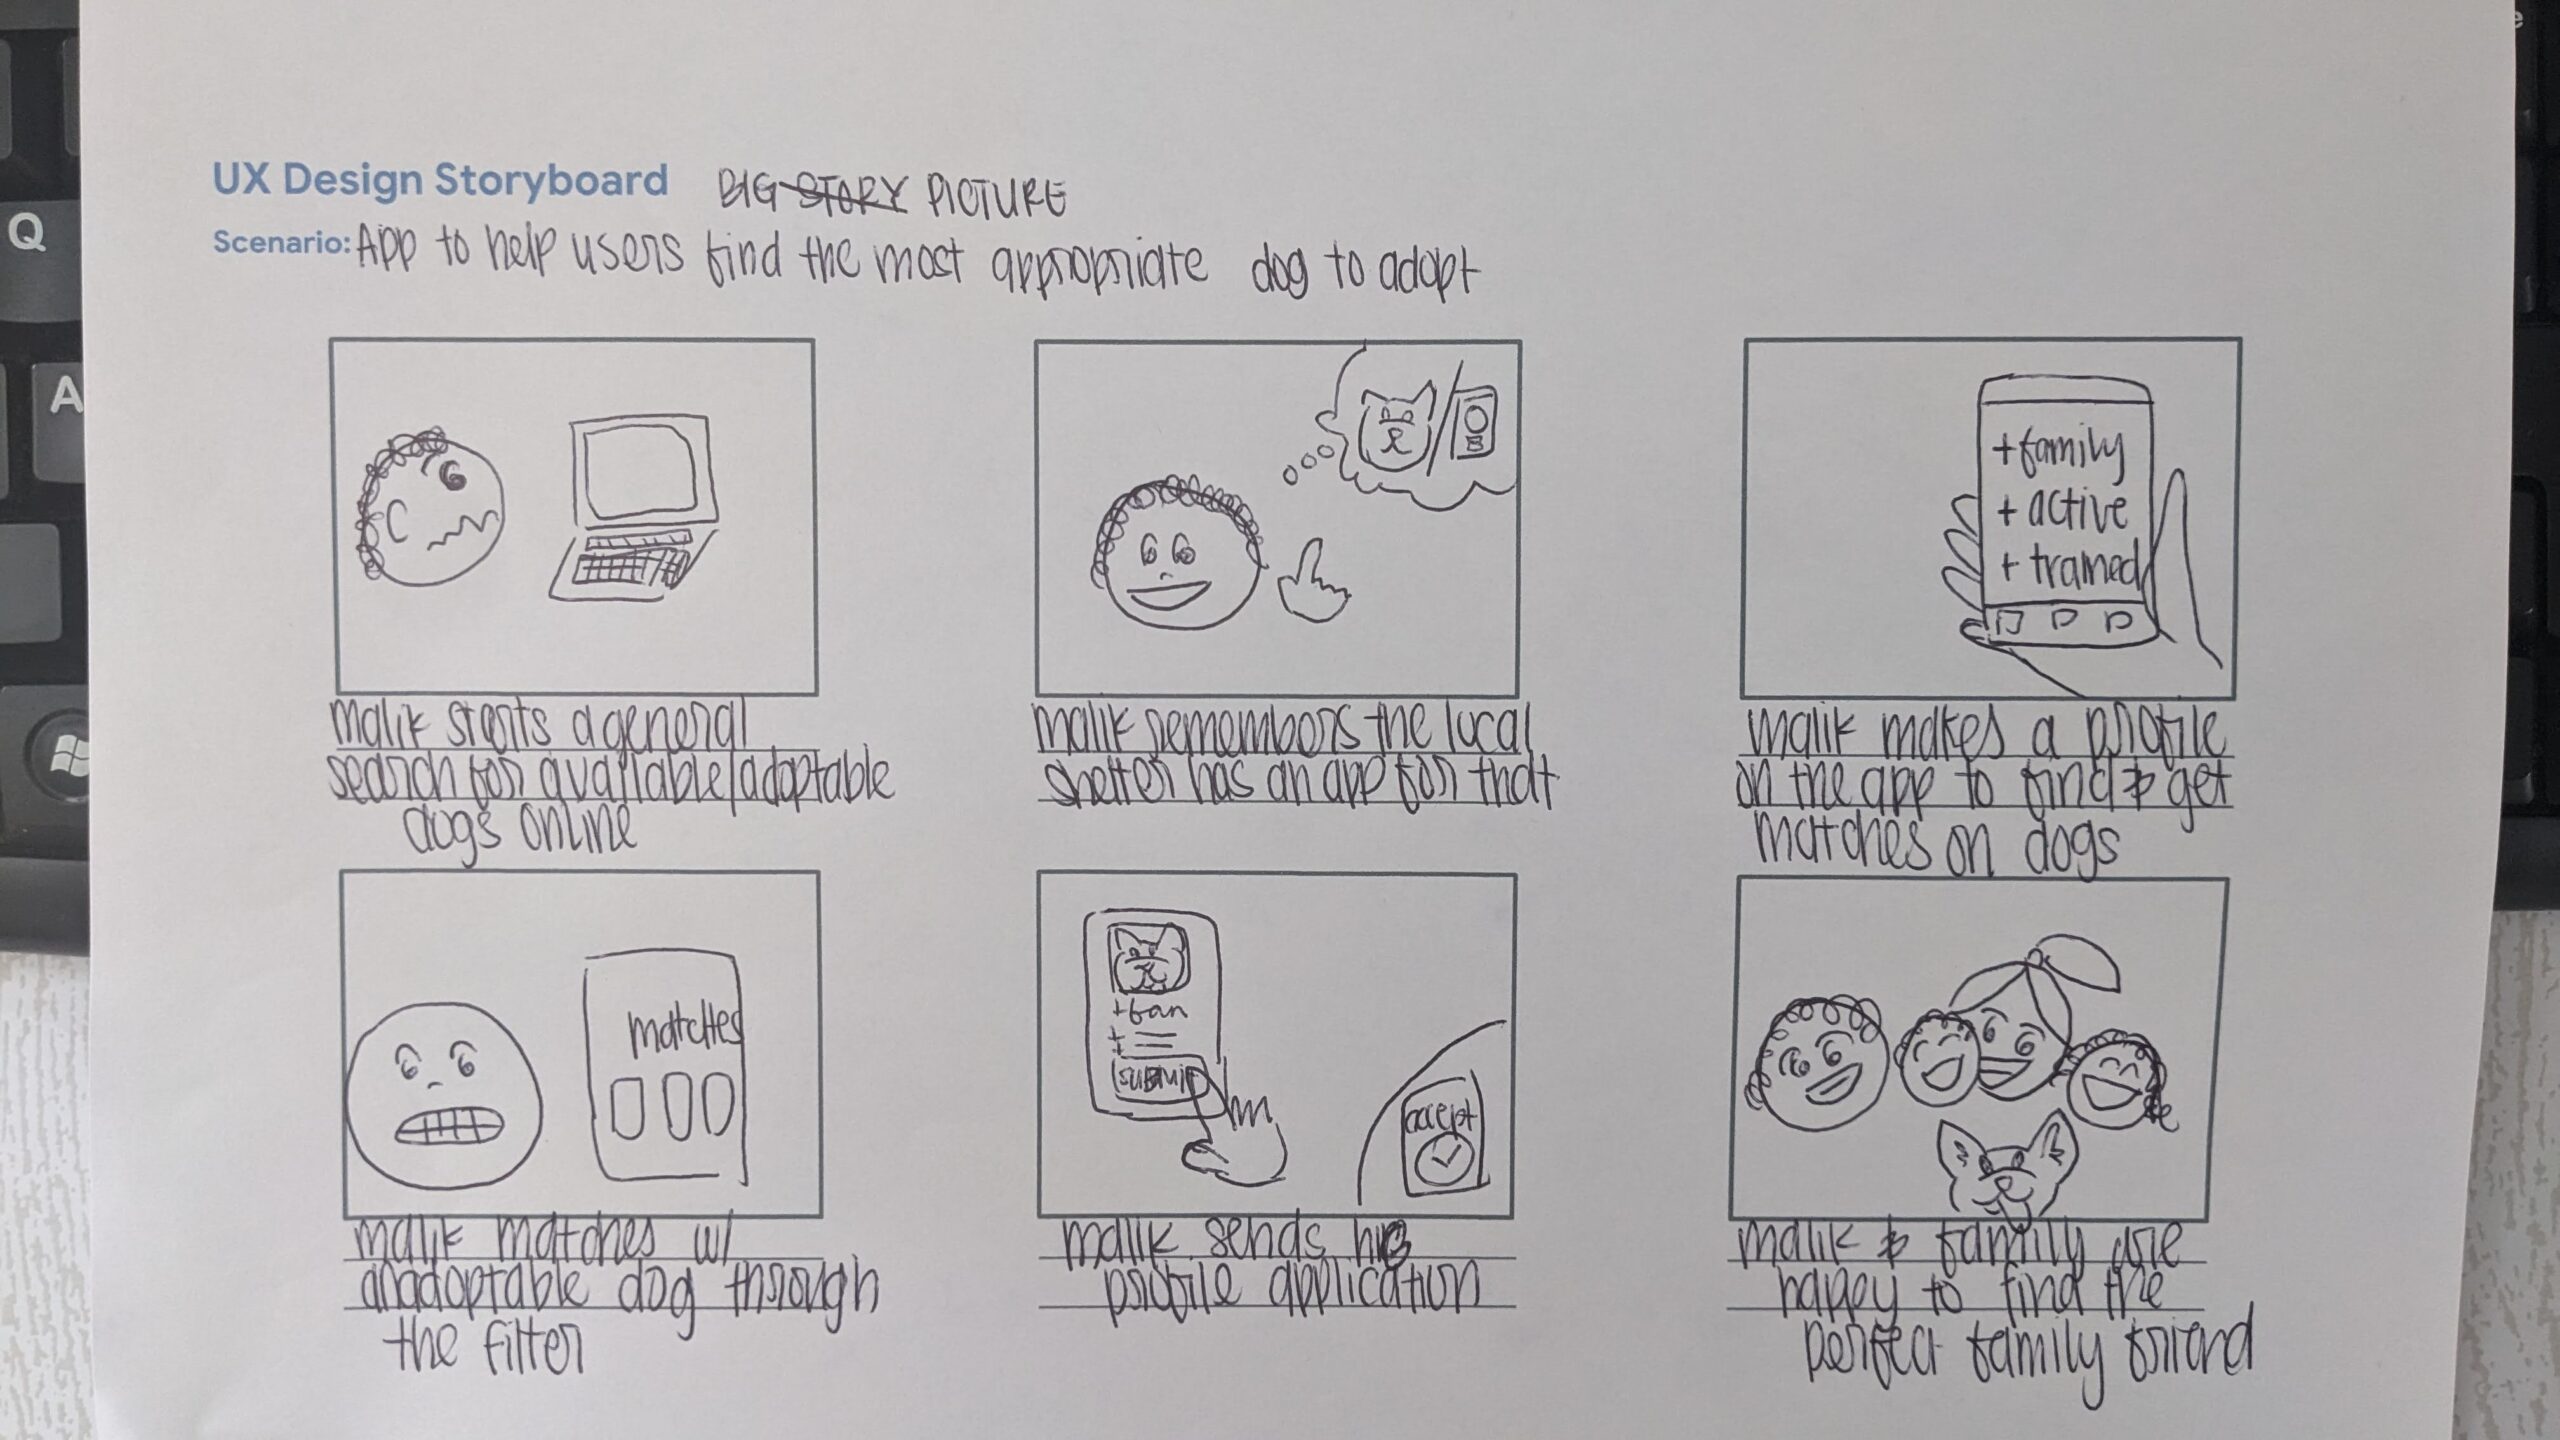 UX Design Storyboard BIG STORY PICTURE
Scenario: App to help users find the most appropriate dog to adopt
+ family
+ active
+ trained
malik starts a general
search for available/adoptable
dogs online
malik remembers the local
shelter has an app for that
malik makes a profile
on the app to find & get
matches on dogs
matches
+ fam
+
submit
accept
malik matches w/
an adoptable dog through
the filter
malik sends his
profile application
malik & family are
happy to find the
perfect family friend
Q
A
e